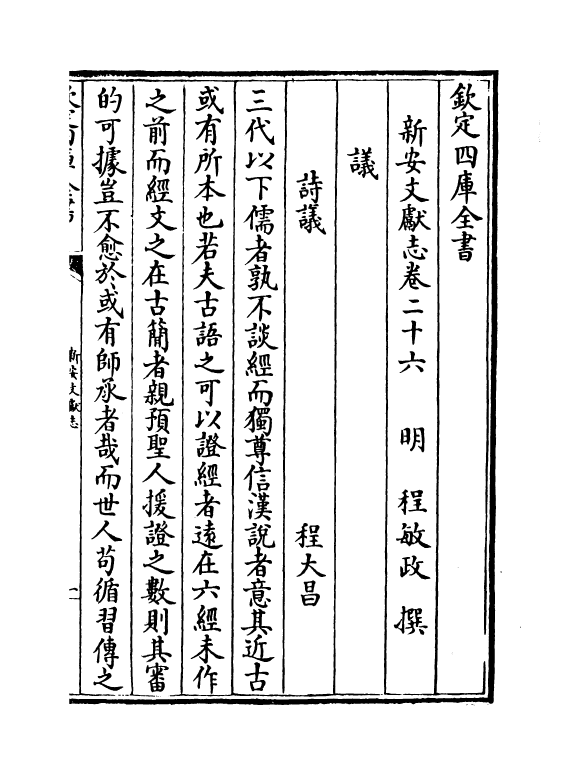 欽定四庫全書
新安文獻志卷二十六 明 程敏政 撰
議
詩議 程大昌
三代以下儒者孰不談經而獨尊信漢說者意其近古
或有所本也若夫古語之可以證經者遠在六經未作
之前而經文之在古簡者親預聖人援證之數則其審
的可據豈不愈於或有師承者哉而世人苟循習傳之
新安文獻志